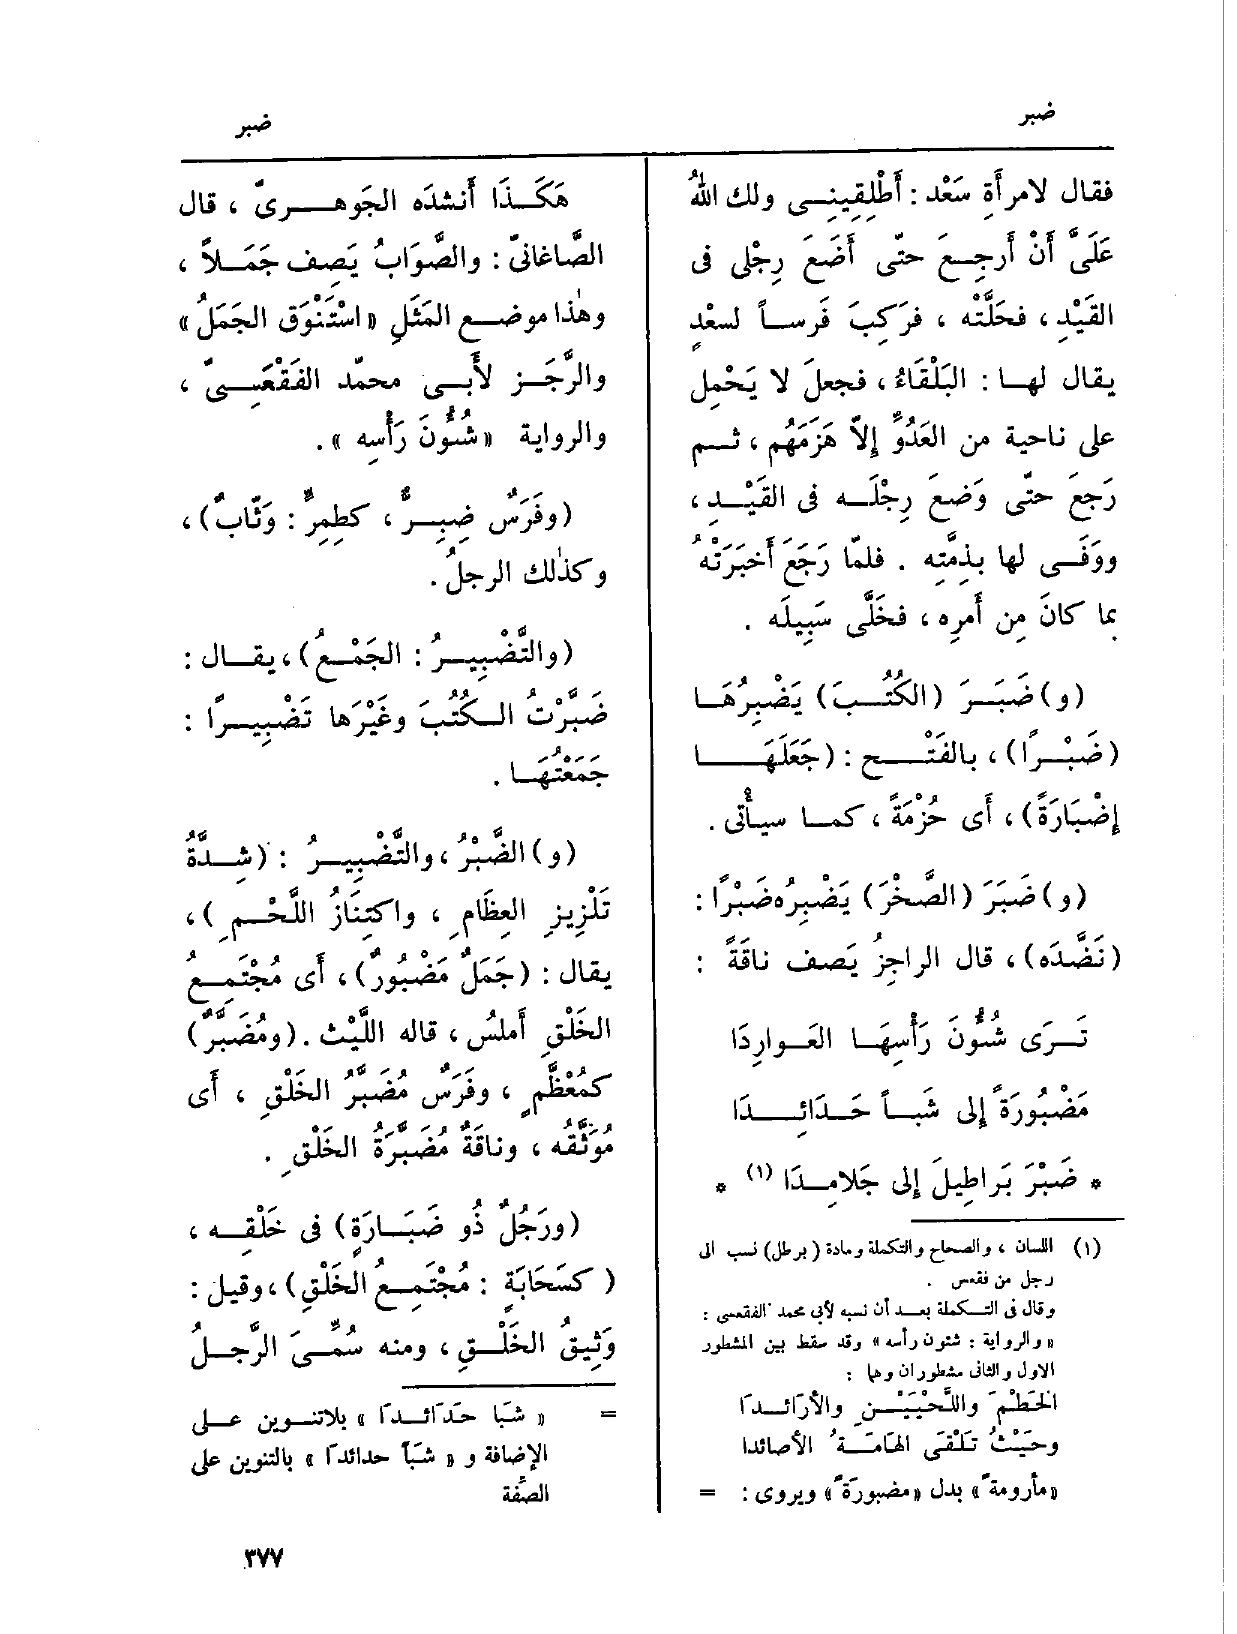 ضبر
ضبر
فقال لامرأةِ سَعْد : أَطْلِقِينِى ولك اللهُ
عَلَىَّ أَنْ أَرجِعَ حتّى أَضَعَ رِجْلِى فى
القَيْدِ ، فحَلَّتْه ، فرَكِبَ فَرساً لسعْدٍ
يقال لها : البَلْقَاءُ ، فجعلَ لا يَحْمِل
على ناحية من العَدُوِّ إِلاّ هَزَمَهُم ، ثم
رَجَع حتّى وَضعَ رِجْلَه فى القَيْدِ ،
ووَفَى لها بذِمَّتِه . فلمّا رَجَعَ أَخبَرَتْهُ
بما كانَ مِن أَمرِه ، فخَلَّى سَبِيلَه .
(و) ضَبَرَ (الكُتُبَ) يَضْبِرُهَا
(ضَبْرًا) ، بالفَتْح : (جَعَلَهَا
إِضْبَارَةً) ، أَى حُزْمَةً ، كما سيأْتى .
(و) ضَبَرَ (الصَّخْرَ) يَضْبِرُه ضَبْرًا :
(نَضَّدَه) ، قال الراجزُ يَصف ناقَةً :
تَرَى شُئُونَ رَأْسِهَا العَوارِدَا
مَضْبُورَةً إِلى شَباً حَدَائِدَا
* ضَبْرَ بَراطِيلَ إِلى جَلامِدَا (١) *
(١) اللسان ، والصحاح والتكملة ومادة (برطل) نسب الى
رجل من فقعس .
وقال فى التكملة بعد أن نسبه لأبى محمد الفقعسى :
« والرواية : شئون رأسه » وقد سقط بين المشطور
الاول والثانى مشطوران وهما :
الخَطْمَ واللَّحْيَيْنِ والأرَائدَا
وحَيْثُ تَلْقَى الهامَةُ الأصائدا
«مأرومة» بدل «مضبورَة» ويروى : =
هَكَذَا أَنشدَه الجَوهرىّ ، قال
الصَّاغانىّ : والصَّوَابُ يَصِف جَمَلاً ،
وهٰذا موضع المَثَلِ «اسْتَنْوَقَ الجَمَلُ»
والرَّجَز لأَبى محمّد الفَقْعَسِىّ ،
والرواية «شُئُونَ رَأْسِه » .
(وفَرَسٌ ضِبِرٌّ ، كطِمِرٍّ : وَثّابٌ) ،
وكذٰلك الرجلُ .
(والتَّضْبِيرُ : الجَمْعُ) ، يقال :
ضَبَّرْتُ الكُتُبَ وغَيْرَها تَضْبِيرًا :
جَمَعْتُهَا .
(و) الضَّبْرُ ، والتَّضْبِيرُ : (شِدَّةُ
تَلْزِيزِ العِظَامِ ، واكتِنَازُ اللَّحْمِ ) ،
يقال : (جَمَلٌ مَضْبُورٌ) ، أَى مُجْتَمِعُ
الخَلْقِ أَملسُ ، قاله اللَّيْث . (ومُضَبَّرٌ)
كمُعَظَّمٍ ، وفَرَسٌ مُضَبَّرُ الخَلْقِ ، أَى
مُوَثَّقُه ، وناقَةٌ مُضَبَّرَةُ الخَلْقِ .
(ورَجُلٌ ذُو ضَبَارَةٍ) فى خَلْقِه ،
( كسَحَابَةٍ : مُجْتَمِعُ الخَلْقِ) ، وقيل :
وَثِيقُ الخَلْقِ ، ومنه سُمِّىَ الرَّجلُ
= « شَبَا حَدَائدَا » بلاتنوين على
الإضافة و « شَباً حدائدَا » بالتنوين على
الصِّفة
٣٧٧